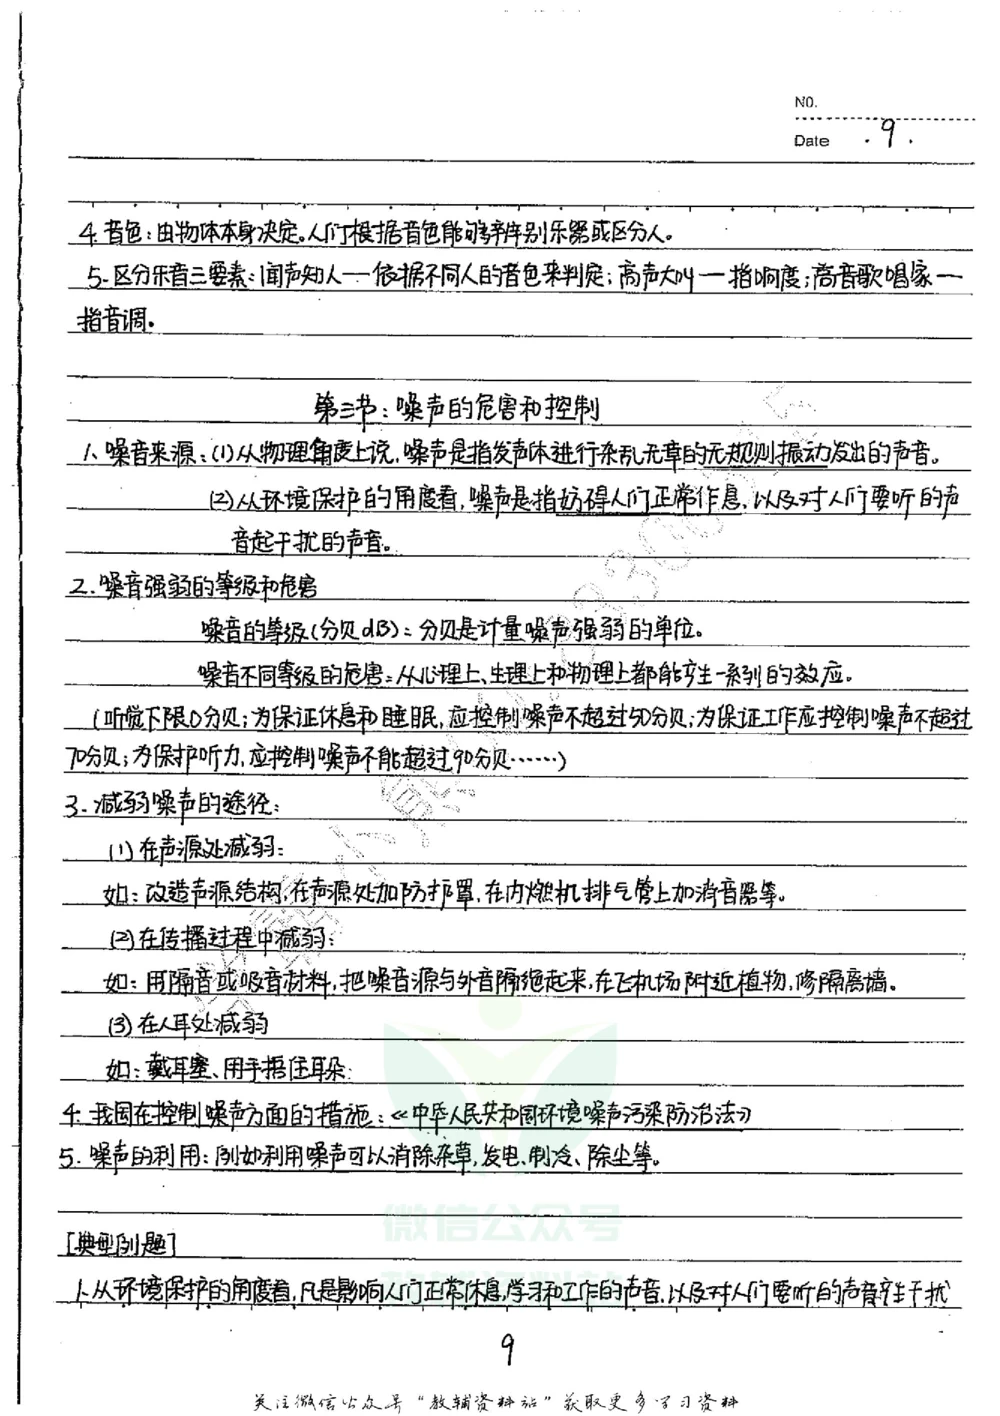 NO.
Date .9.
4. 音色：由物体本身决定。人们根据音色能够辨别乐器或区分人。
5. 区分乐音三要素：闻声知人——依据不同人的音色来判定；高声大叫——指响度；高音歌唱家——
指音调。
第三节：噪声的危害和控制
1、噪音来源：(1)从物理角度上说，噪声是指发声体进行杂乱无章的无规则振动发出的声音。
(2)从环境保护的角度看，噪声是指妨碍人们正常作息，以及对人们要听的声
音起干扰的声音。
2. 噪音强弱的等级和危害
噪音的等级(分贝dB)：分贝是计量噪声强弱的单位。
噪音不同等级的危害：从心理上、生理上和物理上都能产生一系列的效应。
(听觉下限0分贝；为保证休息和睡眠，应控制噪声不超过50分贝；为保证工作应控制噪声不超过
70分贝；为保护听力，应控制噪声不能超过90分贝……)
3. 减弱噪声的途径：
(1)在声源处减弱：
如：改造声源结构，在声源处加防护罩，在内燃机排气管上加消音器等。
(2)在传播过程中减弱：
如：用隔音或吸音材料，把噪音源与外音隔绝起来，在飞机场附近植物，修隔离墙。
(3)在人耳处减弱
如：戴耳塞、用手捂住耳朵.
4. 我国在控制噪声方面的措施：《中华人民共和国环境噪声污染防治法》
5. 噪声的利用：例如利用噪声可以消除杂草，发电、制冷、除尘等。
微信公众号
[典型例题]
1.从环境保护的角度看，凡是影响人们正常休息，学习和工作的声音，以及对人们要听的声音产生干扰
9
关注微信公众号"教辅资料站"获取更多学习资料